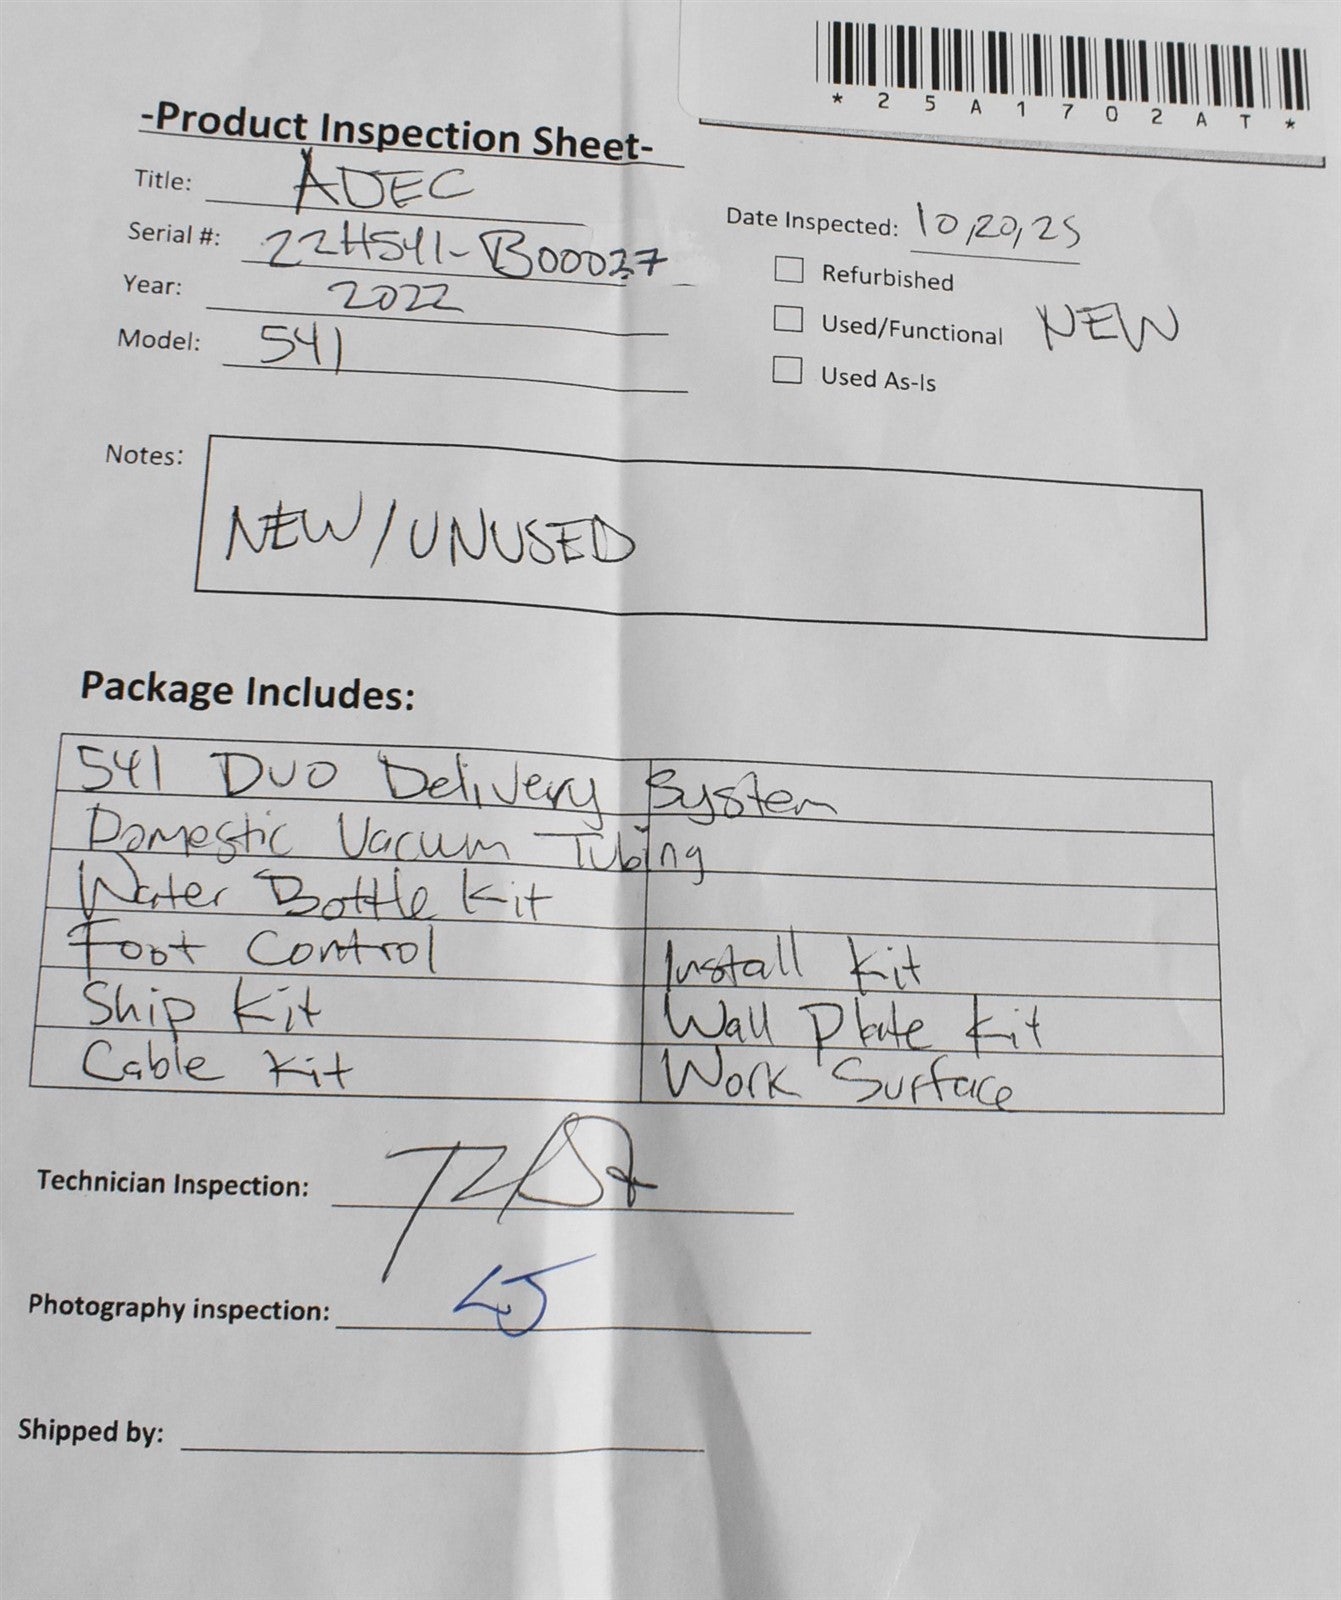 *25A1702AT*
-Product Inspection Sheet-
Title: ADEC
Serial #: 22H541-B00027
Year: 2022
Model: 541
Date Inspected: 10,20,25
Refurbished
Used/Functional NEW
Used As-Is
Notes:
NEW/UNUSED
Package Includes:
541 DUO Delivery System
Domestic Vacuum Tubing
Water Bottle Kit
Foot Control Install Kit
Ship Kit Wall Plate Kit
Cable Kit Work Surface
Technician Inspection:
Photography inspection: LJ
Shipped by: